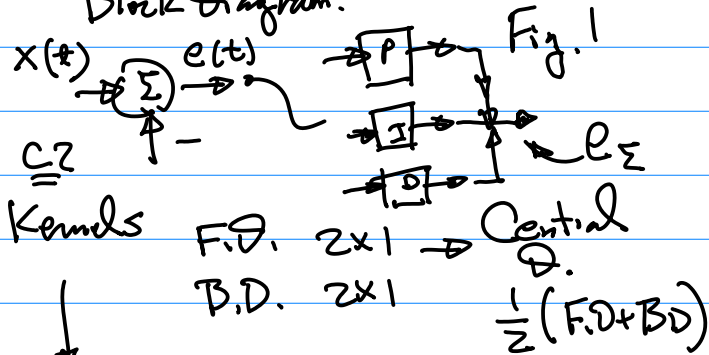 Block Diagram.
x(t) Σ e(t) P Fig. 1
−
I
e_Σ
D
C2
Kernels F.D. 2x1 → Central D.
B.D. 2x1 1/2 (F.D+BD)